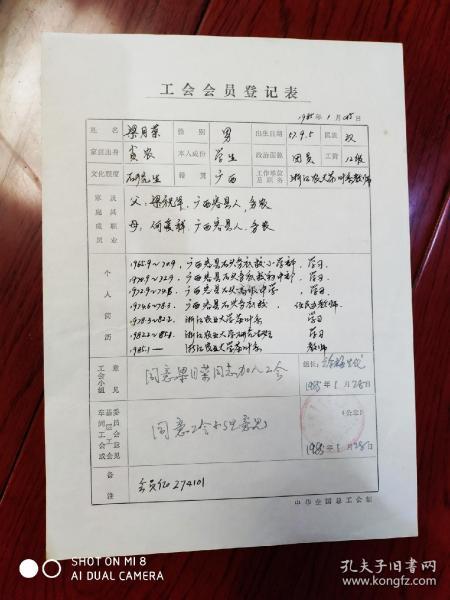 工会会员登记表
1985年1月25日
姓名 梁月荣 性别 男 出生日期 57.9.5 民族 汉
家庭出身 贫农 本人成份 学生 政治面貌 团员 工资 12级
文化程度 研究生 籍贯 广西 工作单位及职务 浙江农大茶叶系教师
家庭成员 及其职业
父:梁 广西容县人,务农
母:何 广西容县人,务农
个人简历
学习
学习
1972.9 学习
任民办教师
1978.3 浙江农业大学茶叶系 学习
浙江农业大学研究生 学习
1985.1— 浙江农业大学茶叶系 教师
工会小组意见 同意梁月荣同志加入工会 组长:
1985年1月28日
车间工会或基层工会委员会意见 同意工会小组意见 (公章)
1985年1月28日
备注 会员证274101
中华全国总工会制
SHOT ON MI 8
AI DUAL CAMERA
孔夫子旧书网
www.kongfz.com